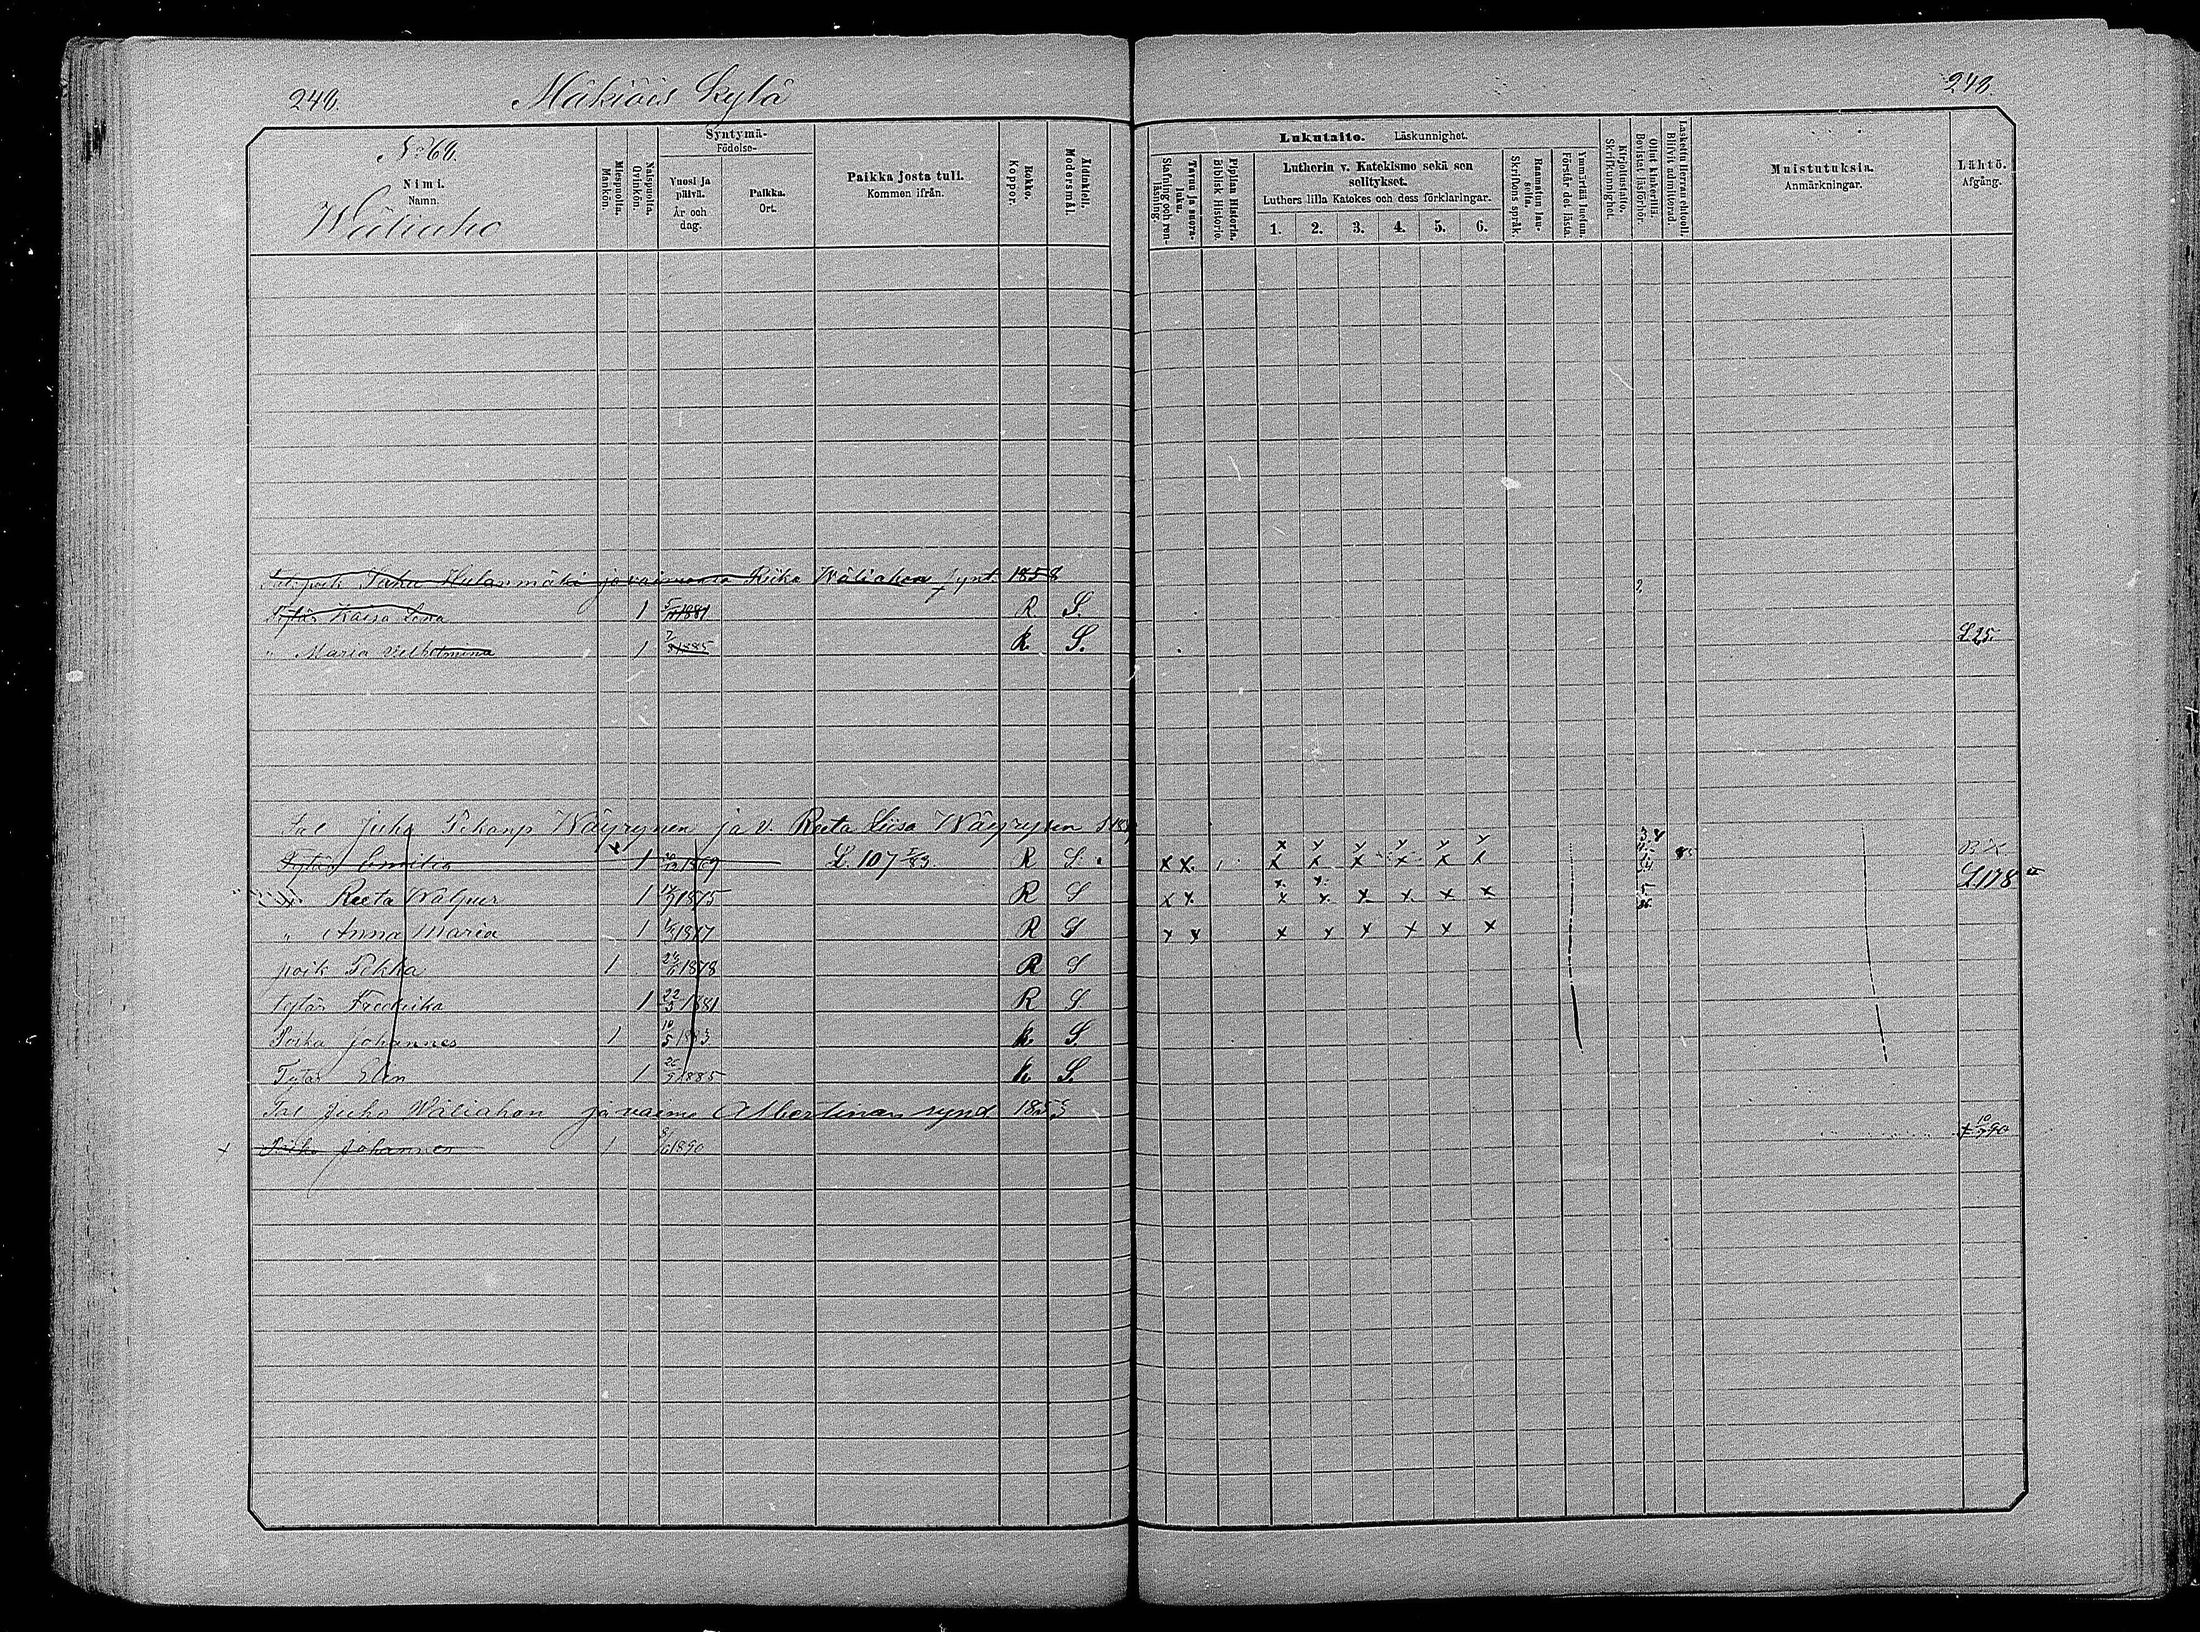 248. Mäkiöis Kylä 248.
No 68.
Nimi.
Namn.
Wäliaho
Miespuolta.
Mankön.
Naispuolta.
Qvinkön.
Syntymä-
Födelse-
Vuosi ja
päivä.
År och
dag.
Paikka.
Ort.
Paikka josta tuli.
Kommen ifrån.
Rokko.
Koppor.
Äidinkieli.
Modersmål.
Lukutaito. Läskunnighet.
Tavuu ja suora-
luku.
Stafning och ren-
läsning.
Piplian Historia.
Biblisk Historie.
Lutherin v. Katekismo sekä sen
selitykset.
Luthers lilla Katekes och dess förklaringar.
1. 2. 3. 4. 5. 6.
Raamatun lau-
seita.
Skriftens språk.
Ymmärtää luetun.
Förstår det lästa.
Kirjoitustaito.
Skrifkunnighet.
Ollut kinkerillä.
Bevistat läsförhör.
Laskettu Herran ehtooll.
Blifvit admitterad.
Muistutuksia.
Anmärkningar.
Lähtö.
Afgång.
Juho Hulanmäki ja vaimonsa Riika Wäliahon synt. 1858
Tytär Kaisa Lena 1 1881 R S.
" Maria Vilhelmina 1 1885 k. S. L 25.
Tal Juho Pekanp Wäyrynen ja V. Reeta Liisa Wäyrysen
Tytär Emilia 1 1869 L. 107 R S. x x x x x x x x
Reeta Walpur 1 1875 R S x x x x x x x x L 178
" Anna Maria 1 1877 R S x x x x x x x x
poik Pekka 1 1878 R S
tytär Fredrika 1 22/3 1881 R S
Poika Johannes 1 10/5 1883 k. S.
Tytär Elin 1 1885 k. S.
Tal Juho Wäliahon ja vaimo Albertinan synd 1853
+ Poika Johannes 1 1890